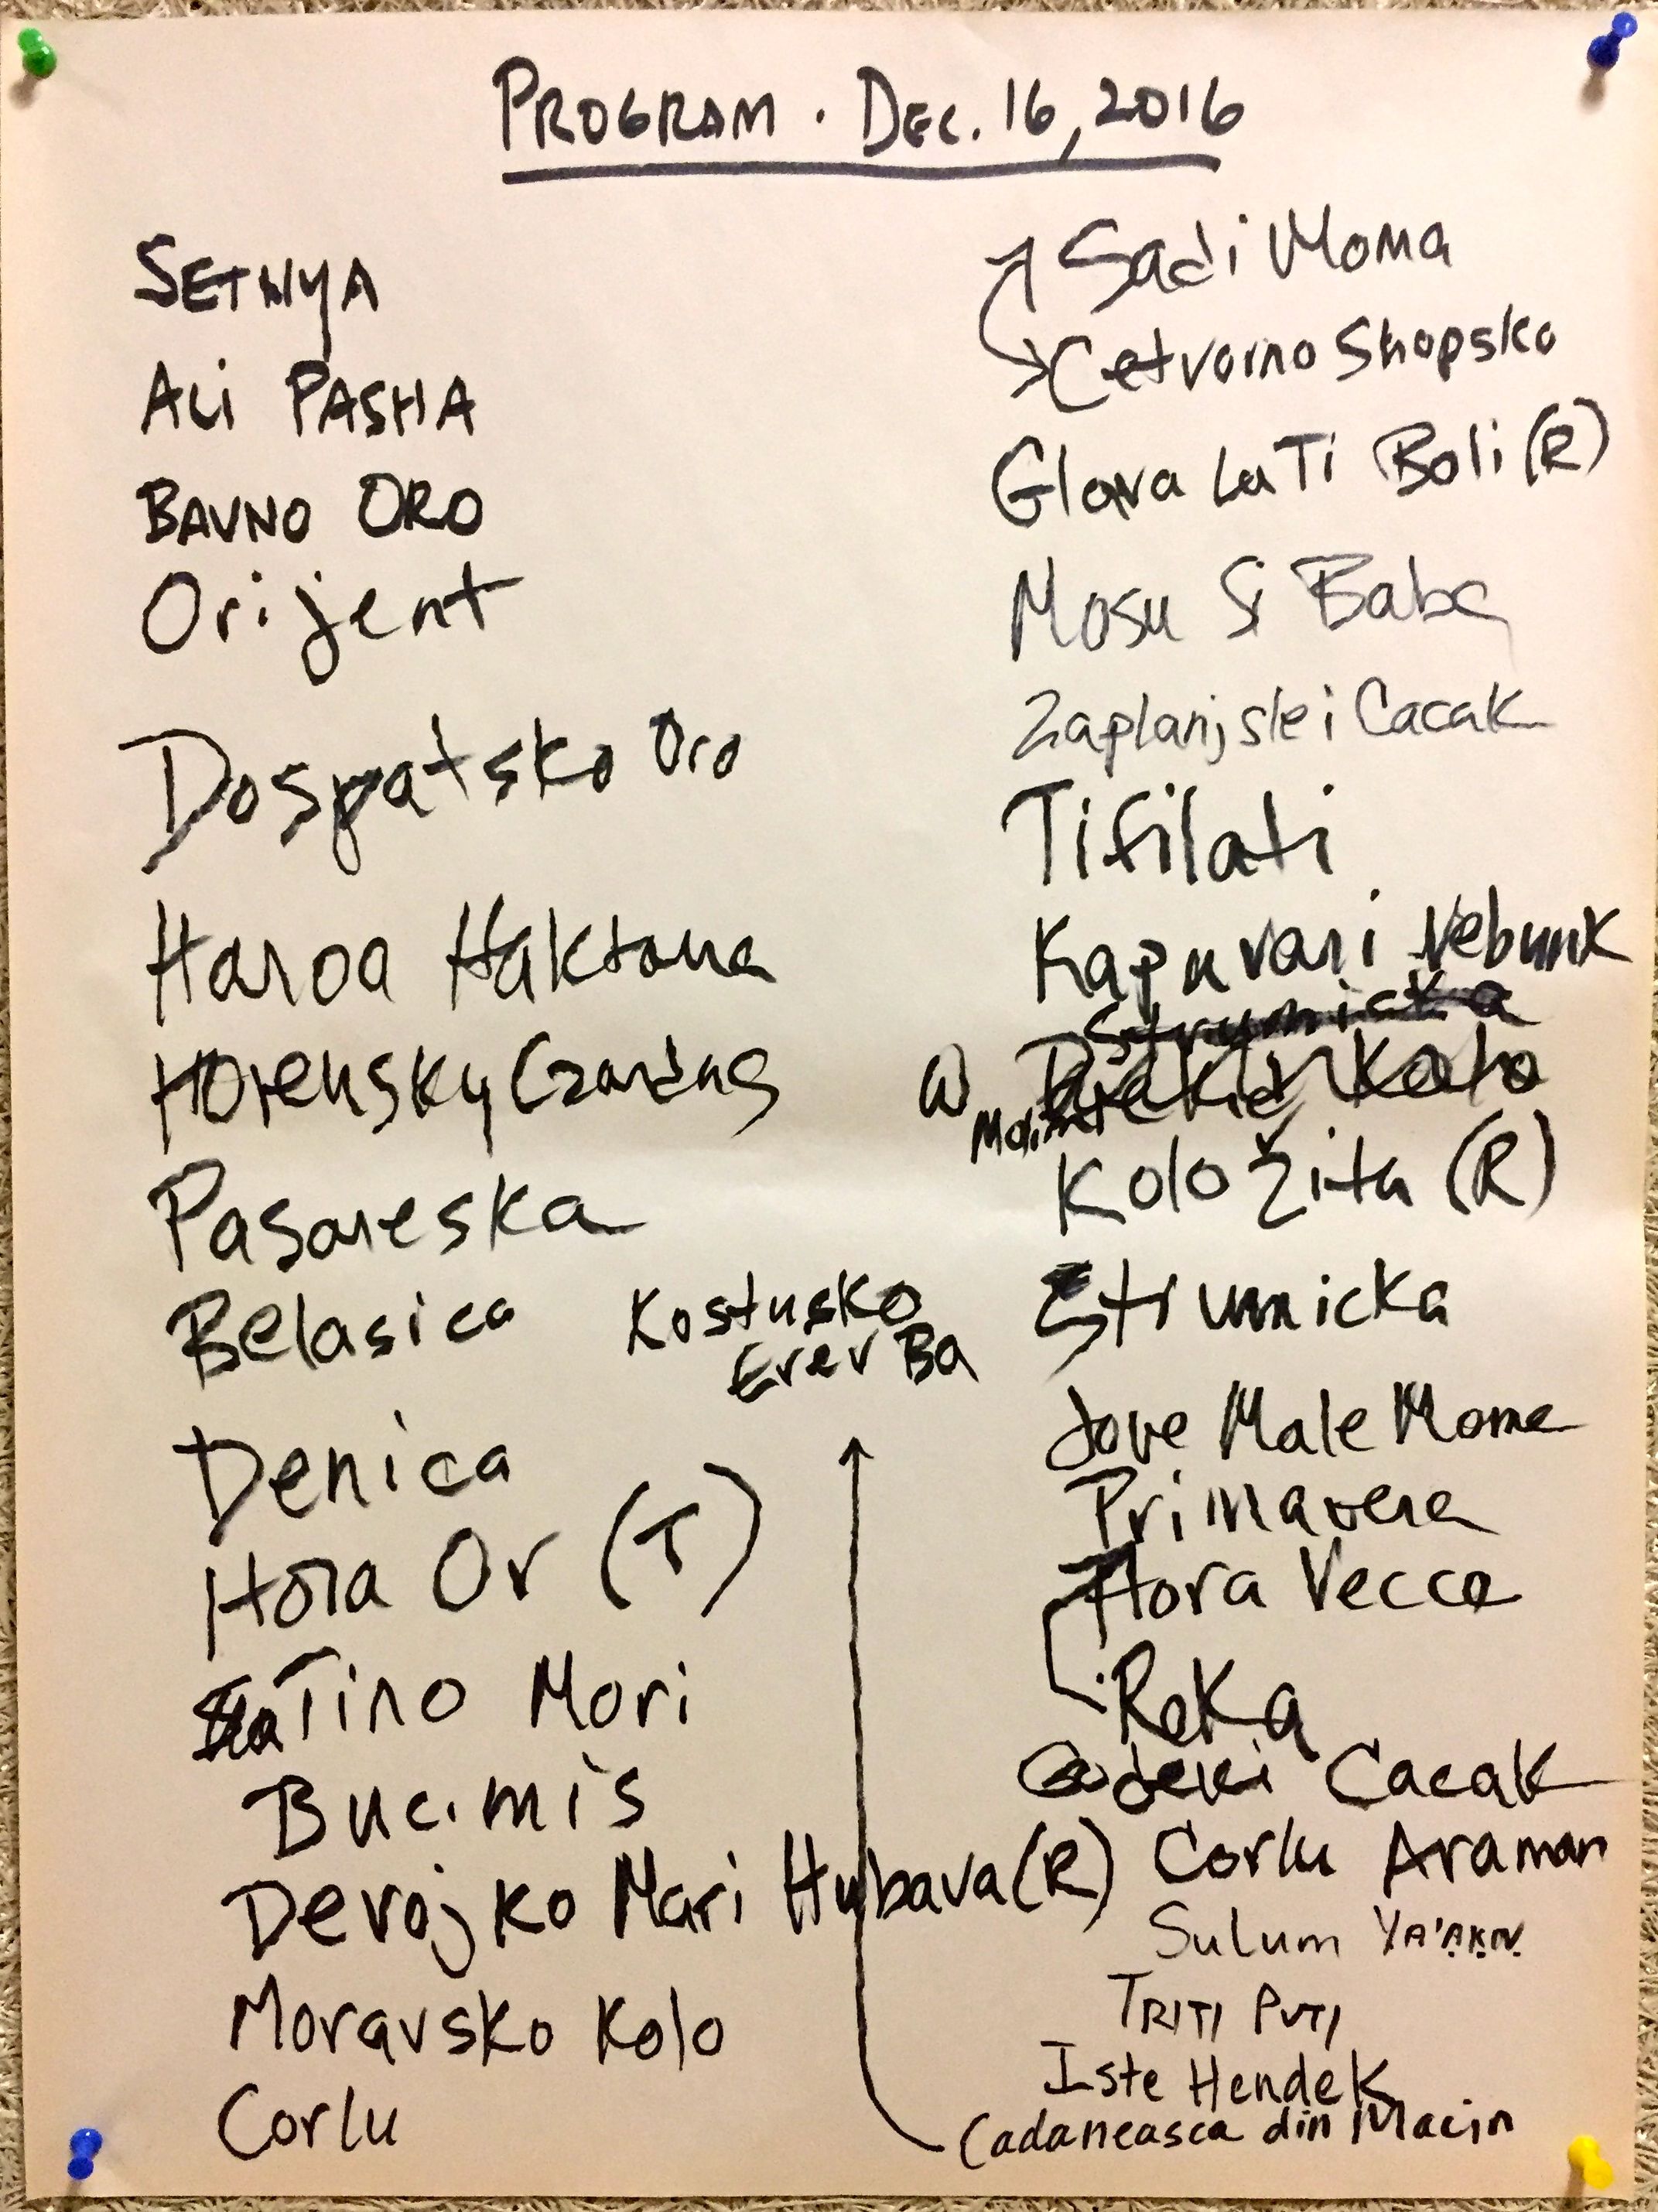 PROGRAM · DEC. 16, 2016
SETNYA
ALI PASHA
BAVNO ORO
Orijent
Dospatsko Oro
Haroa Haktana
Horehsky Czardas
Pasareska
Belasica
Kostursko
Erev Ba
Denica
Hora Or (T)
Tino Mori
Bucimis
Devojko Mari Hubava (R)
Moravsko Kolo
Corlu
Sadi Moma
Cetvorno Shopsko
Glava La Ti Boli (R)
Mosu Si Baba
Zaplanjski Cacak
Tifilati
Kapuvari Verbunk
Strumicka
Kolo
Kolo Žita (R)
Strumicka
Jove Male Mome
Primavera
Hora Vecce
Reka
Cacak
Corlu Araman
Sulum YA'AKOV
TRITI PUTI
Iste Hendek
Cadaneasca din Macin